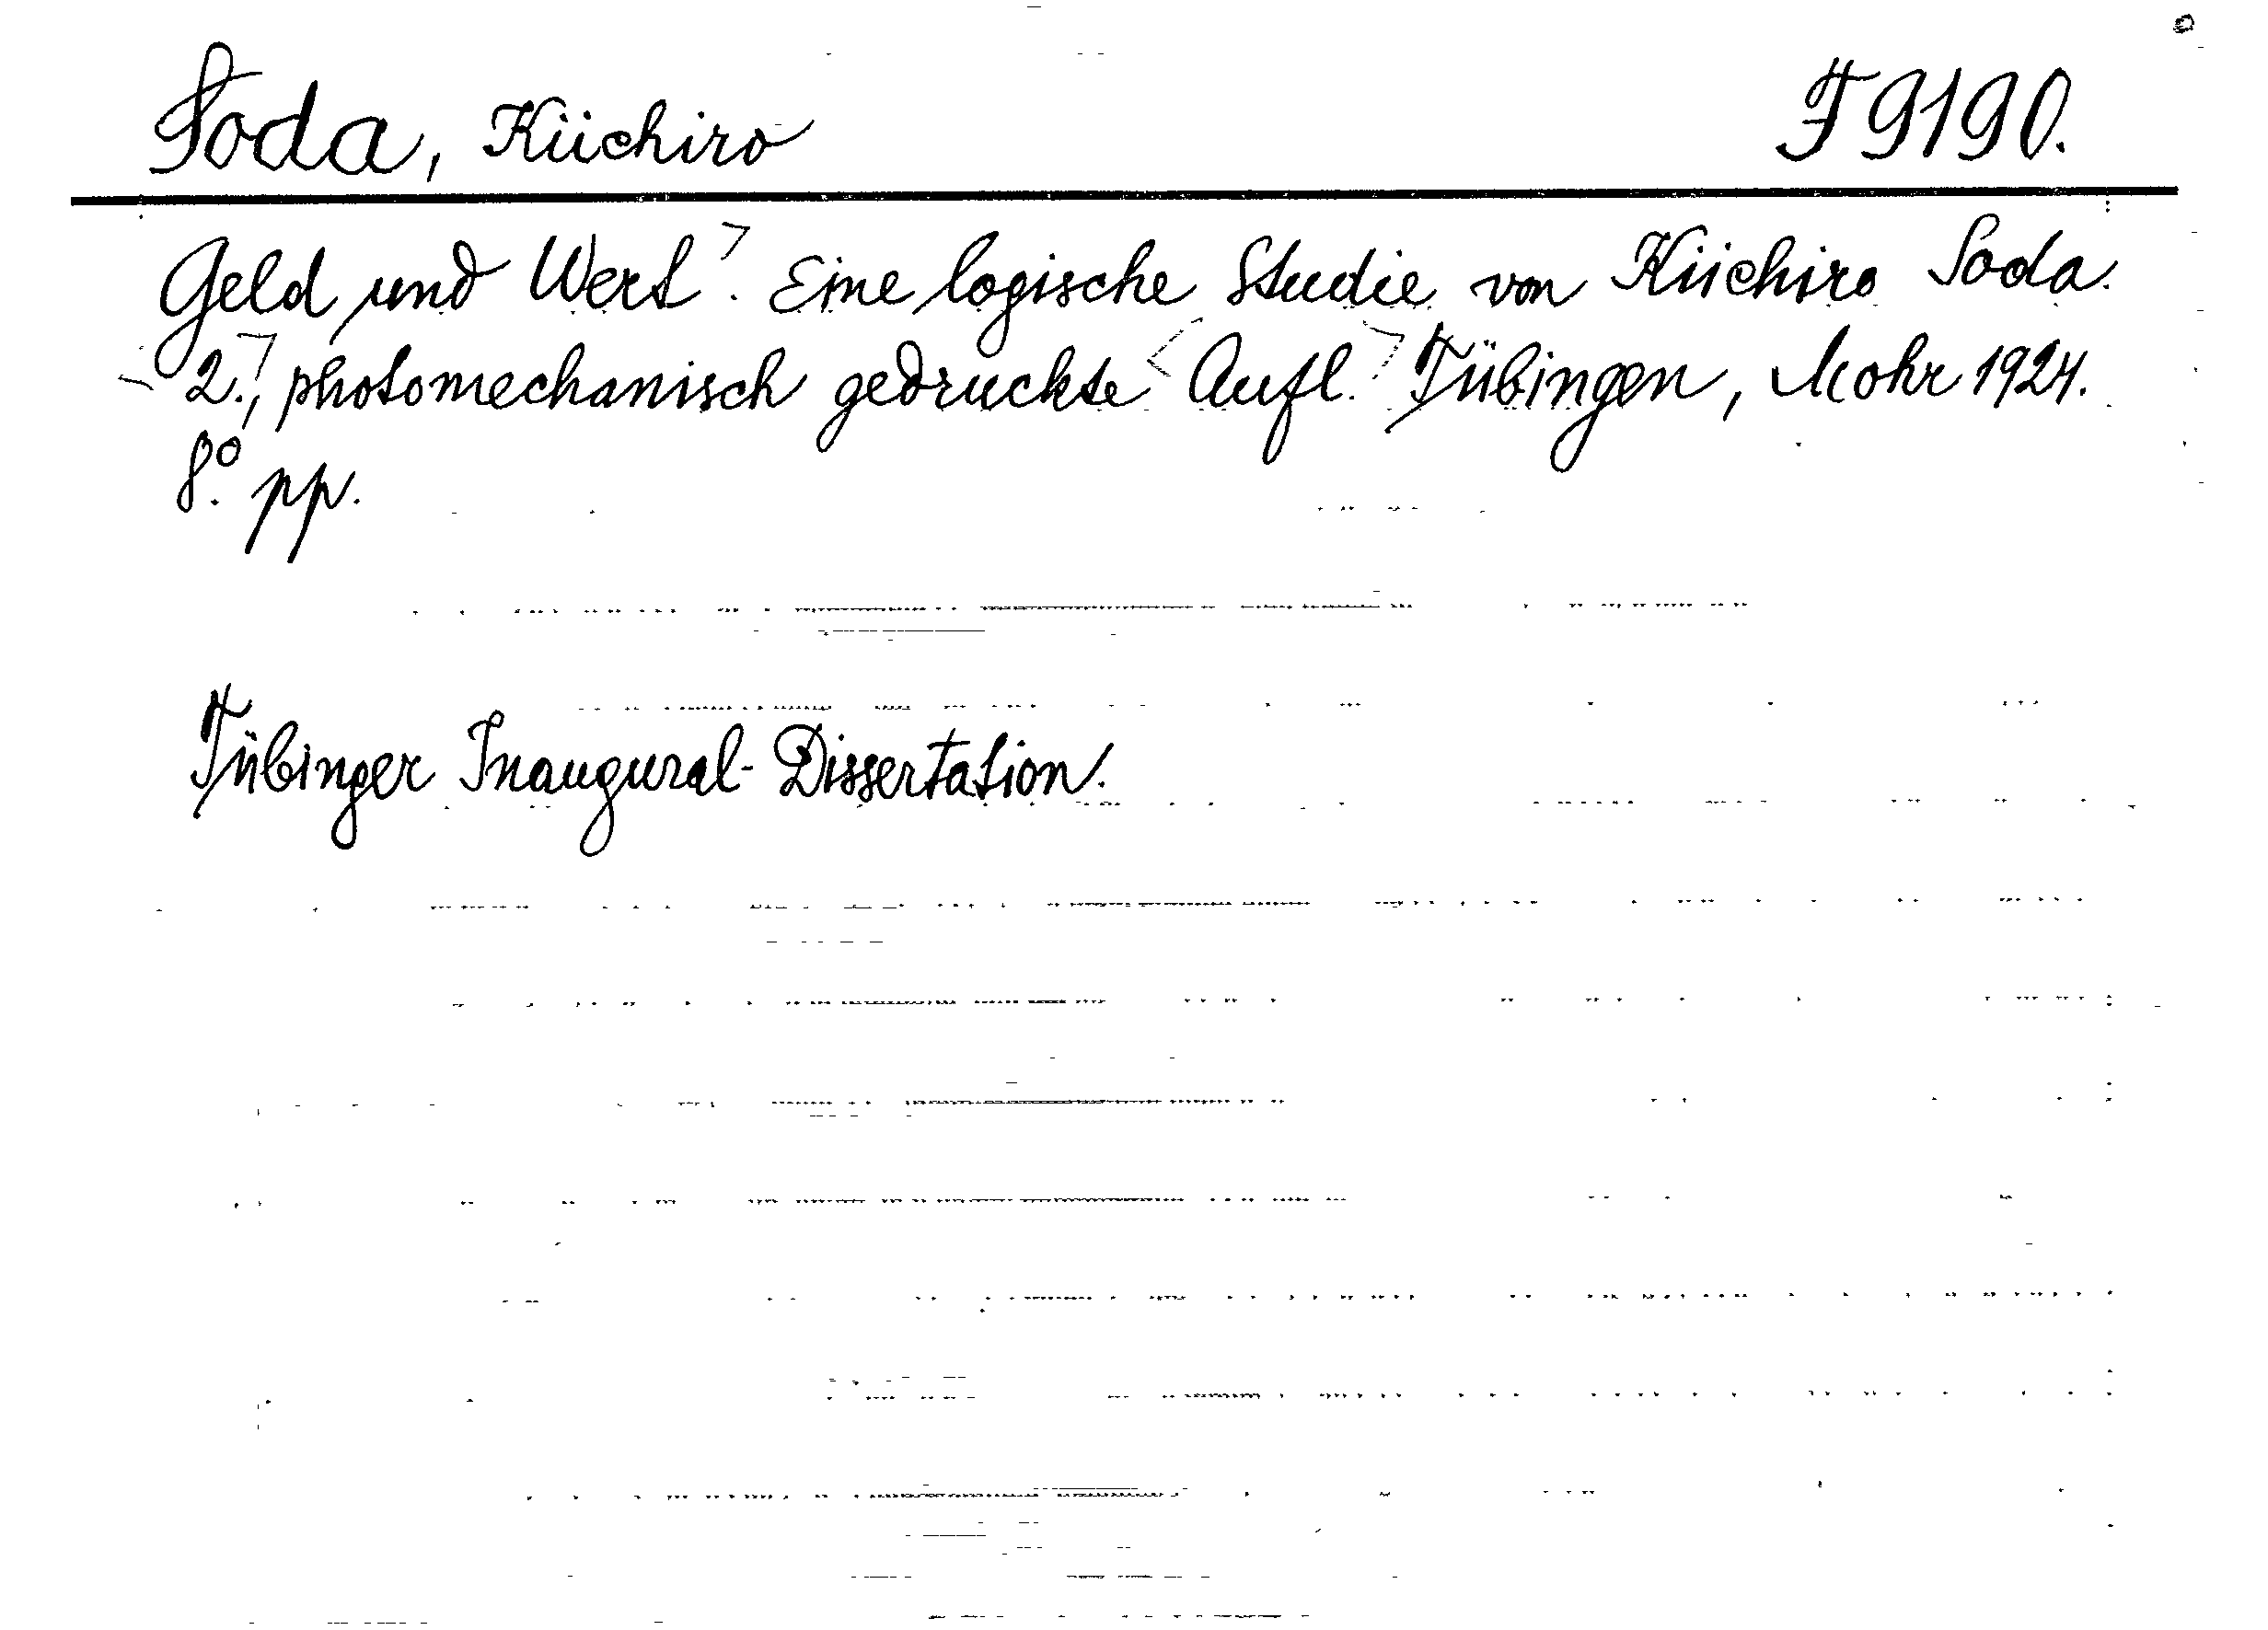 Soda, Kiichiro F 9190.
Geld und Wert. Eine logische Studie von Kiichiro Soda.
2., photomechanisch gedruckte Aufl. Tübingen, Mohr 1924.
8° pp.
Tübinger Inaugural-Dissertation.